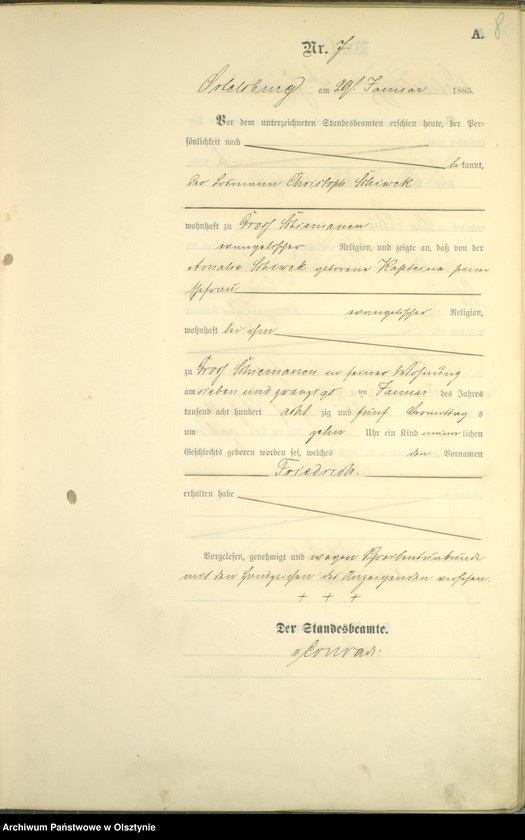 A.
8
Nr. 7.
Ortelsburg am 29. Januar 1885.
Vor dem unterzeichneten Standesbeamten erschien heute, der Per-
sönlichkeit nach
bekannt,
der Losmann Christoph Schiwek
wohnhaft zu Groß Schiemanen
evangelischer Religion, und zeigte an, daß von der
Amalie Schiwek geborene seiner
Ehefrau
evangelischer Religion,
wohnhaft bei ihm
zu Groß Schiemanen in seiner Wohnung
am sieben und zwanzigsten Januar des Jahres
tausend acht hundert achtzig und fünf Vormittags
um zehn Uhr ein Kind männlichen
Geschlechts geboren worden sei, welches den Vornamen
Friedrich
erhalten habe
Vorgelesen, genehmigt und wegen Schreibensunkunde
mit den Handzeichen des Anzeigenden versehen.
+ + +
Der Standesbeamte.
Conrad.
Archiwum Państwowe w Olsztynie